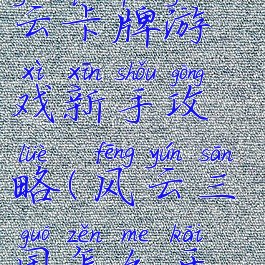 云卡牌游
xì xīn shǒu gōng
戏新手攻
lüè fēng yún sān
略(风云三
guó zěn me kāi